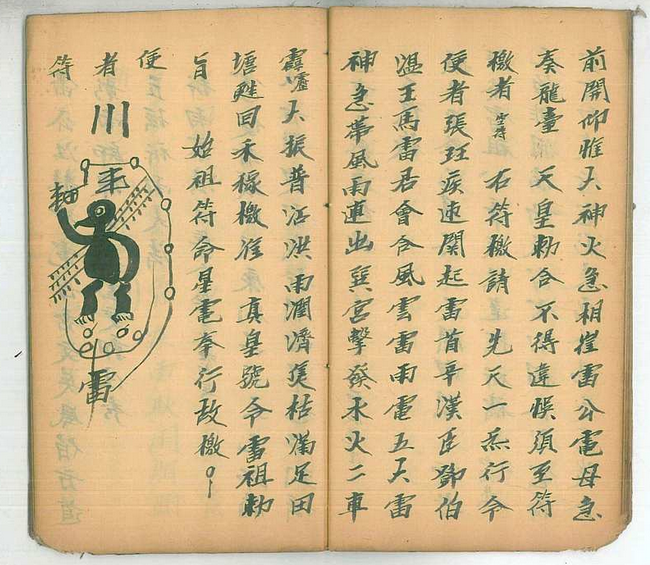 前開仰惟天神火急相崔雷公電母急
奏龍臺 天皇勅令不得違悞須至符
檄者 右符檄請先天一炁行令
使者張玨疾速関起雷首辛漢臣鄧伯
温王馬雷君會合風雲雷雨電五天雷
神急帶風雨速出巽宮擊發水火二車
大振普江洪雨潤濟焦枯滿足田
塘甦回禾稼檄准真皇號令雷祖勅
旨 始祖符命星電奉行故檄
使
者
符
川
雷